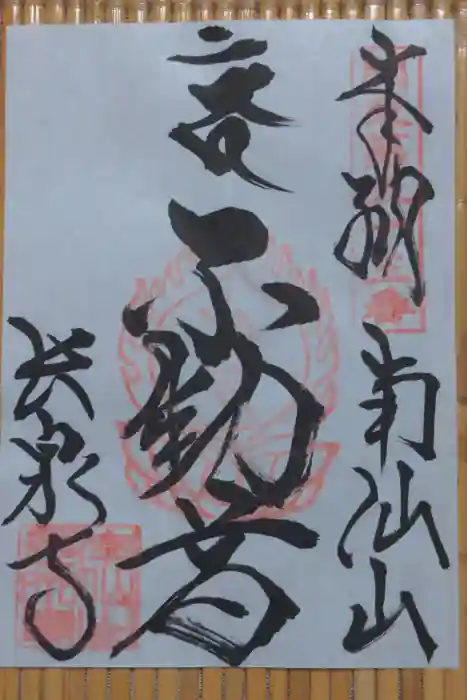 奉納 南仙山
不動尊
長泉寺